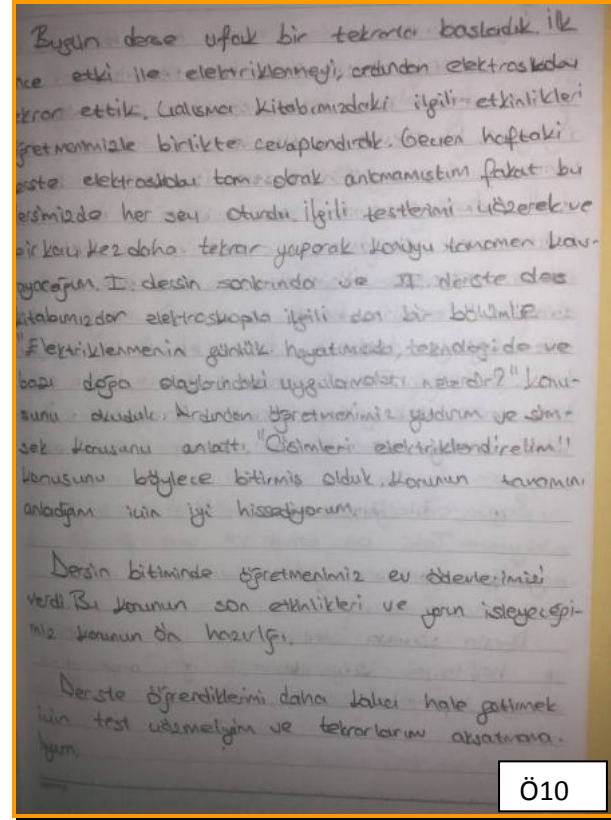 Bugün derse ufak bir tekrarla başladık. İlk
nce etki ile elektriklenmeyi, ardından elektroskobu
ekrar ettik. Çalışma kitabımızdaki ilgili etkinlikleri
ğretmenimizle birlikte cevaplendırdık. Geçen haftaki
erste elektroskobu tam olarak anlamamıştım fakat bu
ersimizde her şey oturdu. İlgili testlerimi çözerek ve
bir kaç kez daha tekrar yaparak konuyu tamamen kav-
ayacağım. I. dersin sonlarında ve II. derste ders
kitabımızdan elektroskopla ilgili dan bir bölümle
"Elektriklenmenin günlük hayatımızda, teknolojide ve
bazı doğa olaylarındaki uygulamaları nelerdir?" konu-
sunu okuduk. Ardından öğretmenimiz yıldırım ve şim-
şek konusunu anlattı. "Cisimleri elektriklendirelim!"
konusunu böylece bitirmiş olduk. Konunun tamamını
anladığım için iyi hissediyorum.
Dersin bitiminde öğretmenimiz ev ödevlerimizi
verdi. Bu konunun son etkinlikleri ve yarın işleyeceği-
miz konunun ön hazırlığı.
Derste öğrendiklerimi daha kalıcı hale getirmek
için test çözmeliyim ve tekrarlarımı aksatmama-
lıyım.
Ö10